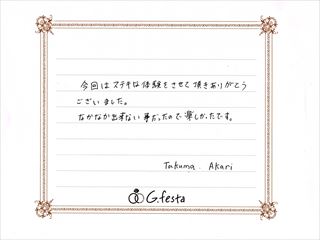 今回はステキな体験をさせて頂きありがとう
ございました。
なかなか出来ない事だったので楽しかったです。
Takuma. Akari
G.festa